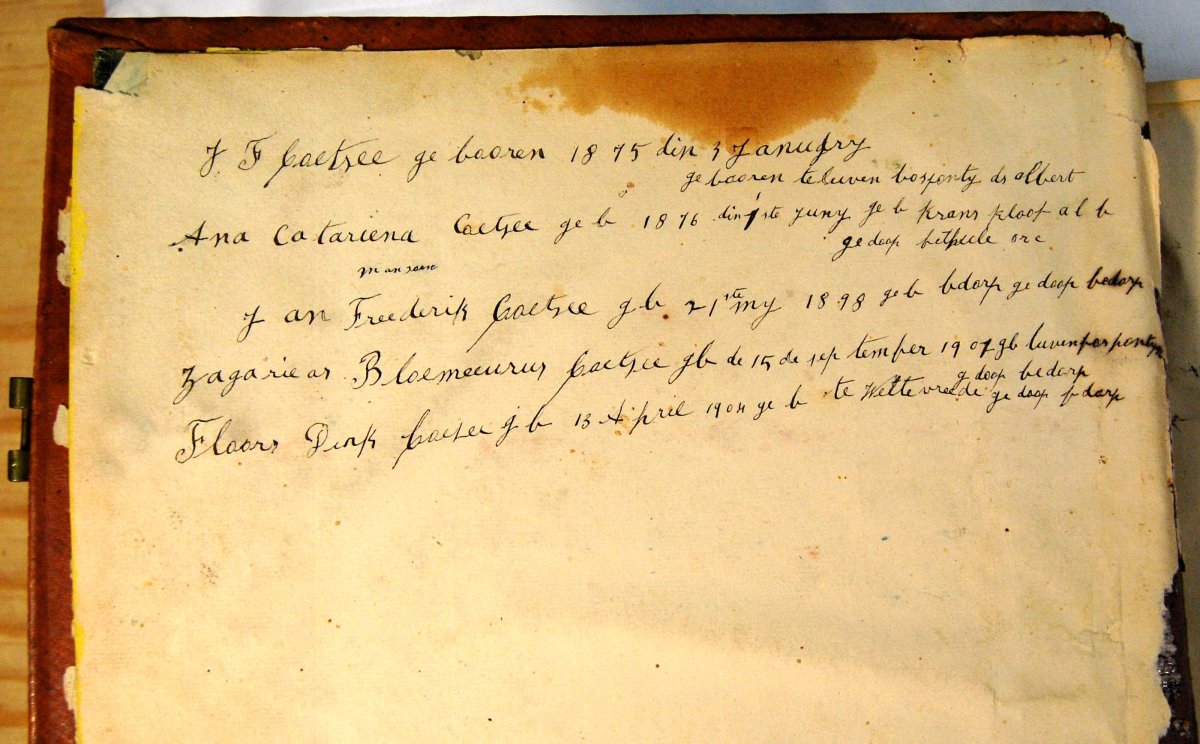 J F Coetsee ge booren 1875 din 3 January
ge booren teluven bosponty ds albert
Ana Catariena Coetsee ge b 1876 din 1ste Juny ge b Krans kloof al b
ge doop bethulie
J an Freederik Coetsee g b 21ste my 1898 ge b bdorp ge doop bedorp
Zagarieas Bloemeurus Coetsee gb de 15 de sep tember 1901 gb
g doop bedorp
Floors Dirk Coetsee g b 13 April 1904 ge b te Weltevreede ge doop bdorp